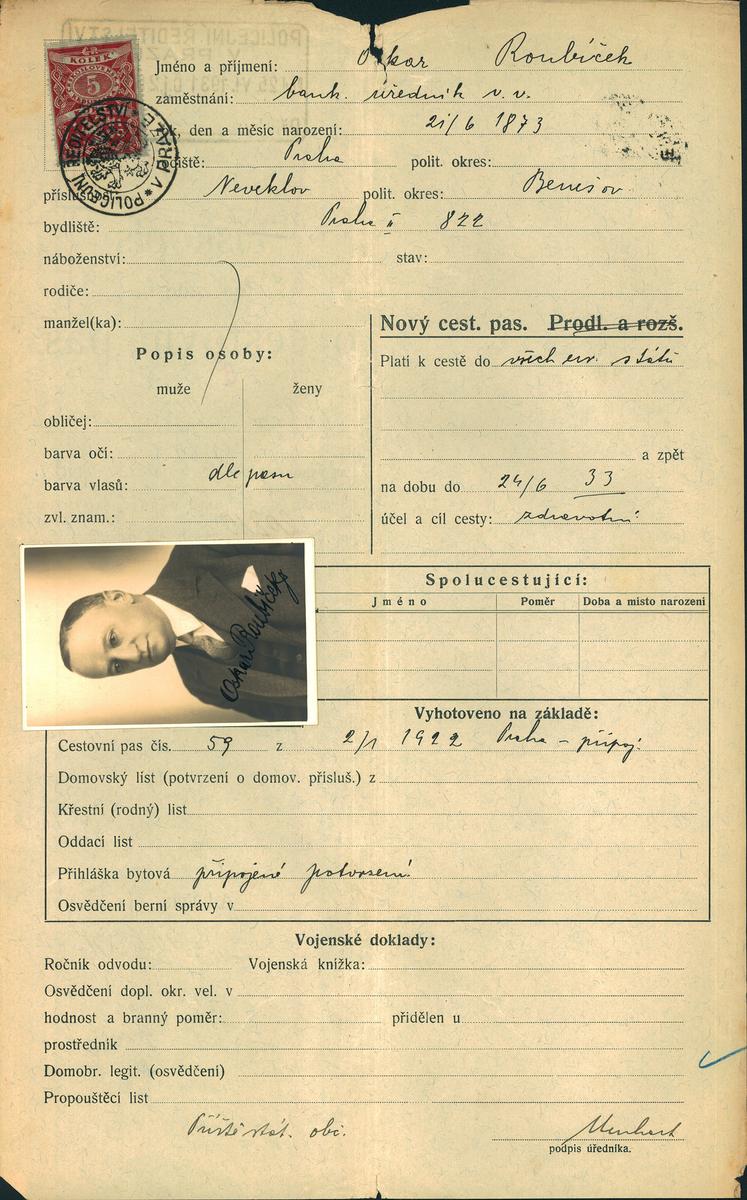 POLICEJNÍ ŘEDITELSTVÍ
V PRAZE
KOLEK
5
POLICEJNÍ ŘEDITELSTVÍ V PRAZE
Jméno a příjmení: Oskar Roubíček
zaměstnání: bank. úředník v. v.
k, den a měsíc narození: 21/6 1873
diště: Praha polit. okres:
příslušnost: Neveklov polit. okres: Benešov
bydliště: Praha II 822
náboženství: stav:
rodiče:
manžel(ka):
Nový cest. pas. Prodl. a rozš.
Popis osoby:
Platí k cestě do všech evr. států
muže ženy
obličej:
barva očí: a zpět
barva vlasů: dle pasu na dobu do 24/6 33
zvl. znam.: účel a cíl cesty: zdravotní
Spolucestující:
Jméno Poměr Doba a místo narození
Oskar Roubíček
Vyhotoveno na základě:
Cestovní pas čís. 59 z 2/1 1922 Praha – připoj.
Domovský list (potvrzení o domov. přísluš.) z
Křestní (rodný) list
Oddací list
Přihláška bytová připojené potvrzení
Osvědčení berní správy v
Vojenské doklady:
Ročník odvodu: Vojenská knížka:
Osvědčení dopl. okr. vel. v
hodnost a branný poměr: přidělen u
prostředník
Domobr. legit. (osvědčení)
Propouštěcí list
stát. obč.
podpis úředníka.